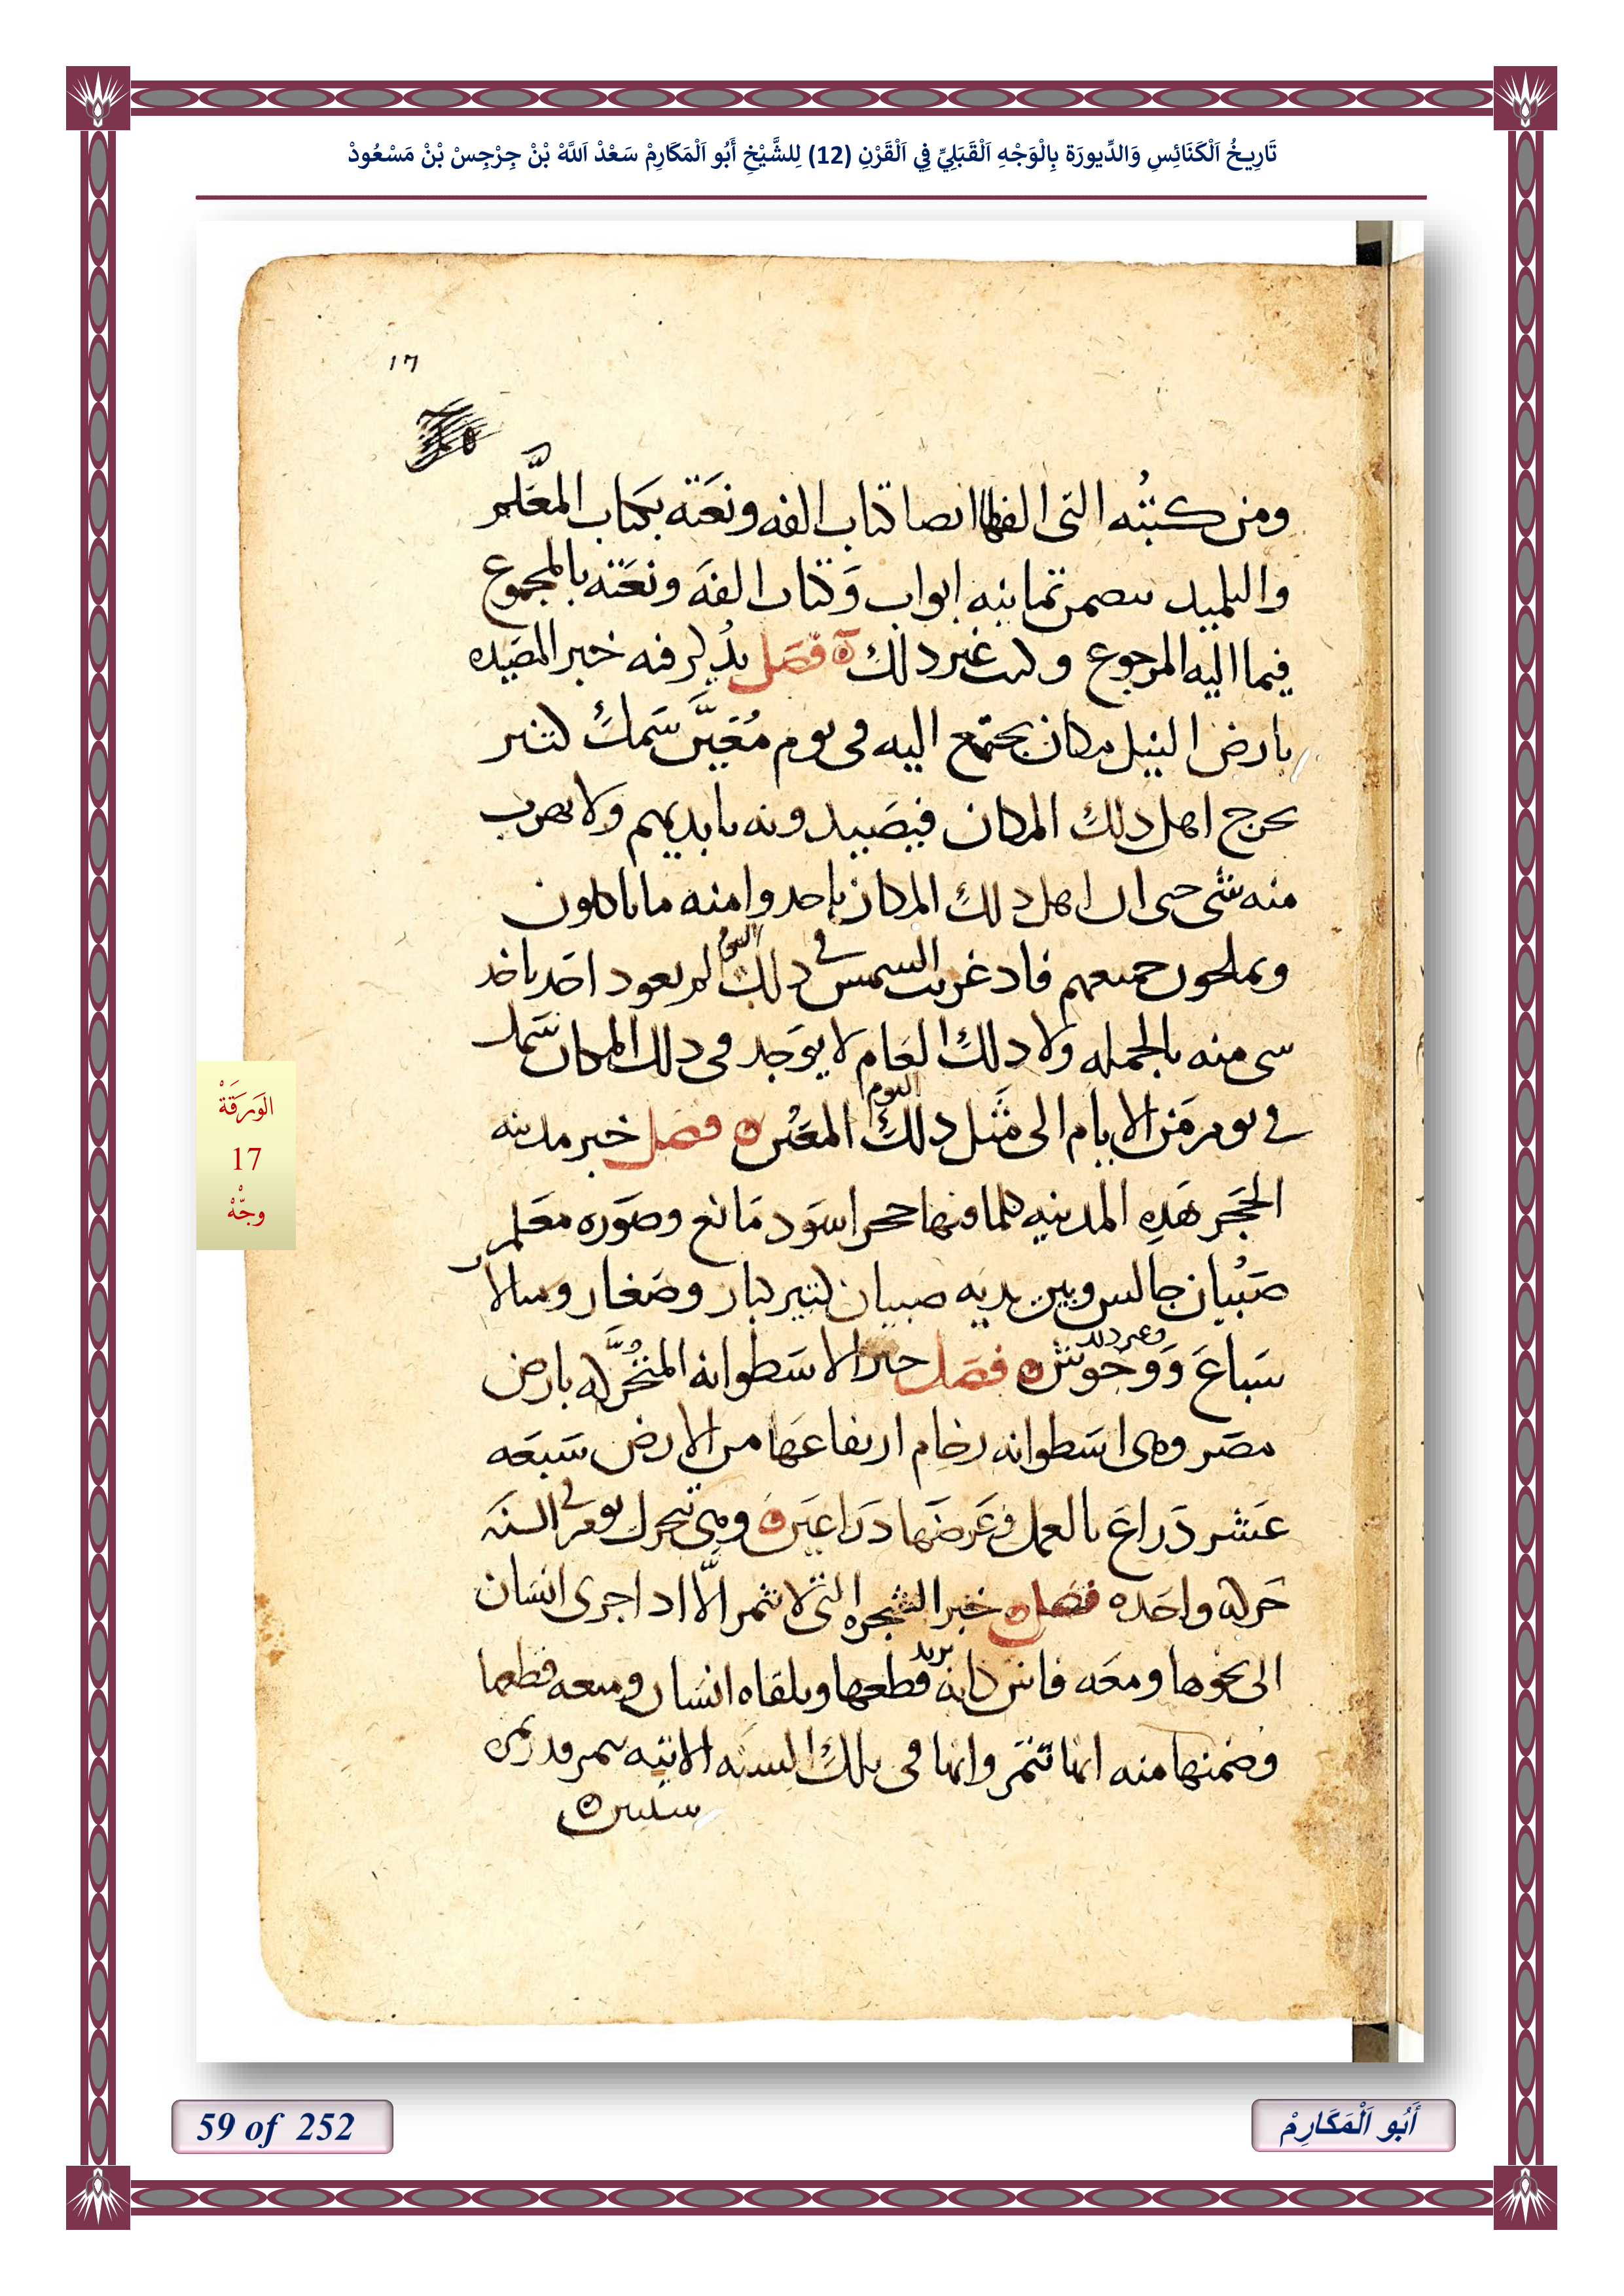 تَارِيخُ اَلْكَنَائِسِ وَالدِّيورَة بِالْوَجْهِ اَلْقَبَلِيِّ فِي اَلْقَرْنِ (12) لِلشَّيْخِ أَبُو اَلْمَكَارِمْ سَعْدْ اَللَّهْ بْنْ جِرْجِسْ بْنْ مَسْعُودْ
١٧
ومن كتبُه التى الفها ايضا كتاب الفه ونعَته بكتاب المعَّلم
والتلميد يتضمن تمانيه ابواب وَكتاب الفَه ونعَته بالمجموع
فيما اليه المرجوع وكتب غير دلك ه فصَل يدُكر فيه خبر المصَيده
بارض النيل مكان يجتمع اليه فى يوم مُعَيَّن سَمك كتير
يخرج اهل دلك المكان فيصَيدونه بايديهم ولا يهرب
منه شى حتى ان اهل دلك المكان ياخدوا منه ما ياكلون
ويملحون جميعهم فاد غربت الشمس في دلك اليوم لم يعود احَد ياخد
شى منه بالجمله ولا دلك العَام لا يوَجد فى دلك المكان سَمك
في يوم مَن الايام الى مَثل دلك اليوم المعَين ه فصَل خبر مدينه
الحَجَر هَدِه المدينه كلما فيها حجر اسوَد مَانع وصَوره معَلم
صَبْيان جالس وبين يديه صبيان كتير كبار وصَغار ومثالات
سَباعَ وَوحَوش وغير دلك ه فصَل خبر الاسَطوانه المتحُرَّكه بارض
مصَر وهى اسَطوانه رخام ارتفاعَها من الارض سَبعَه
عَشر دَراعَ بالعمل وعَرضَها دَراعيَن ه وهى تتحرك يوم في السنَه
حَركه واحَده فصَل ه خبر الشجره التى لا تثمر الّا اد اجرى انسَان
الى نحوها ومعَه فاس كانه يريد قطعها ويلقاه انسَان ومنعه قطعها
وضَمنها منه انها تثمَر وانها فى تلك السَنه الاتيه تثمر قدر ثمره
سنتين ه
الوَرَقَةْ
17
وجّْهْ
59 of 252
أَبُو اَلْمَكَارِمْ